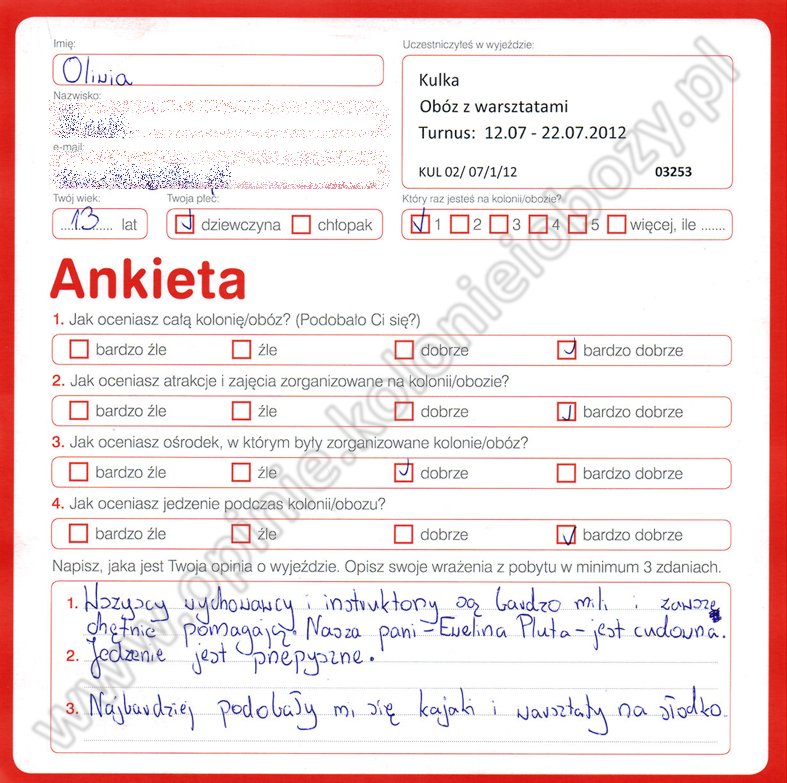 Imię:
Uczestniczyłeś w wyjeździe:
Oliwia
Kulka
Obóz z warsztatami
Turnus: 12.07 - 22.07.2012
KUL 02/ 07/1/12 03253
Nazwisko:
e-mail:
Twój wiek:
Twoja płeć:
Który raz jesteś na kolonii/obozie?
13 lat
dziewczyna chłopak
1 2 3 4 5 więcej, ile .......
Ankieta
1. Jak oceniasz całą kolonię/obóz? (Podobało Ci się?)
bardzo źle źle dobrze bardzo dobrze
2. Jak oceniasz atrakcje i zajęcia zorganizowane na kolonii/obozie?
bardzo źle źle dobrze bardzo dobrze
3. Jak oceniasz ośrodek, w którym były zorganizowane kolonie/obóz?
bardzo źle źle dobrze bardzo dobrze
4. Jak oceniasz jedzenie podczas kolonii/obozu?
bardzo źle źle dobrze bardzo dobrze
Napisz, jaka jest Twoja opinia o wyjeździe. Opisz swoje wrażenia z pobytu w minimum 3 zdaniach.
1. Wszyscy wychowawcy i instruktorzy są bardzo mili i zawsze
chętnie pomagają. Nasza pani - Ewelina Pluta - jest cudowna.
2. Jedzenie jest przepyszne.
3. Najbardziej podobały mi się kajaki i warsztaty na słodko.
www.opinie.kolonieiobozy.pl